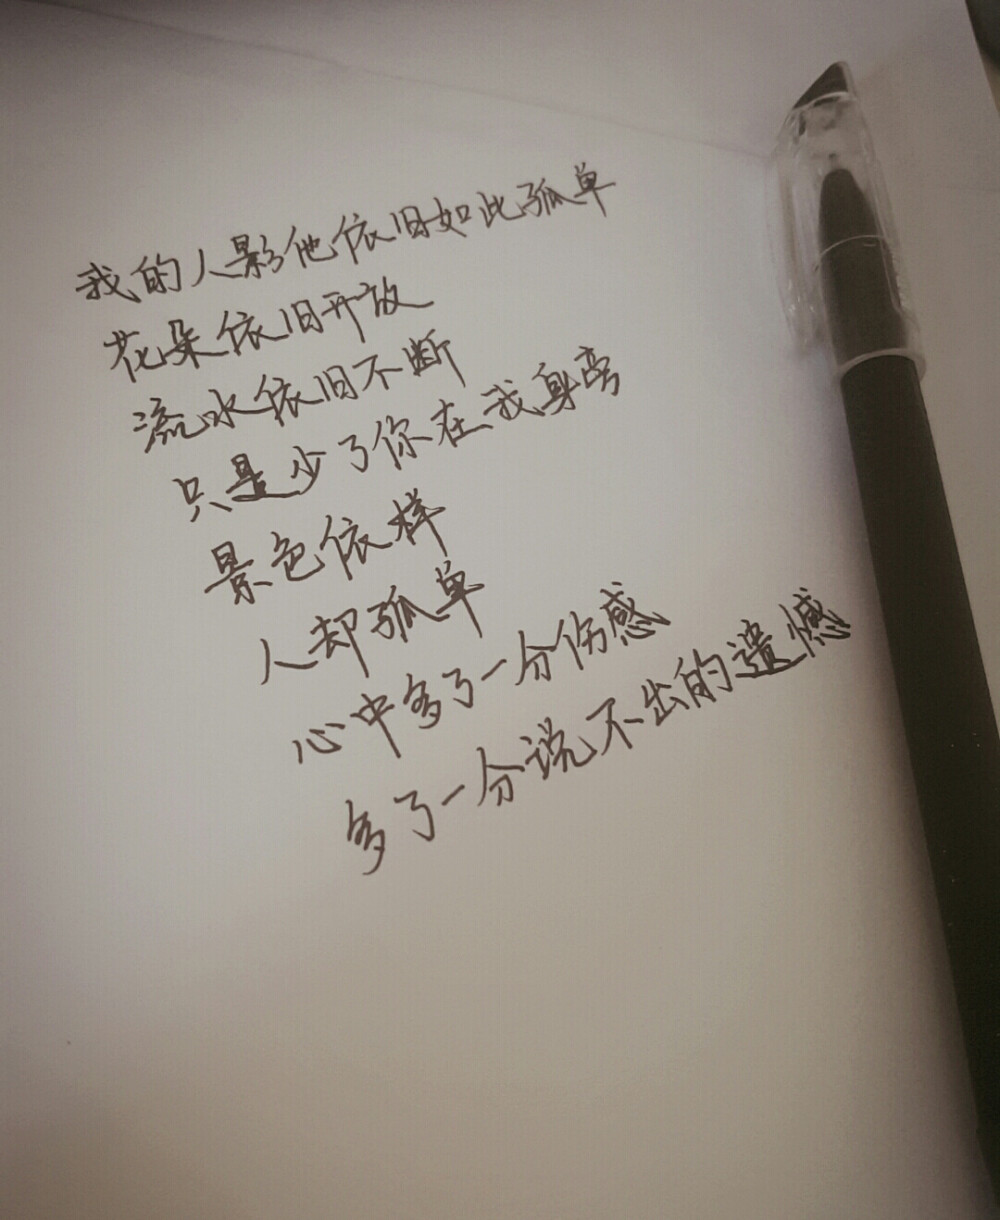 我的人影他依旧如此孤单
花朵依旧开放
流水依旧不断
只是少了你在我身旁
景色依样
人却孤单
心中多了一分伤感
多了一分说不出的遗憾